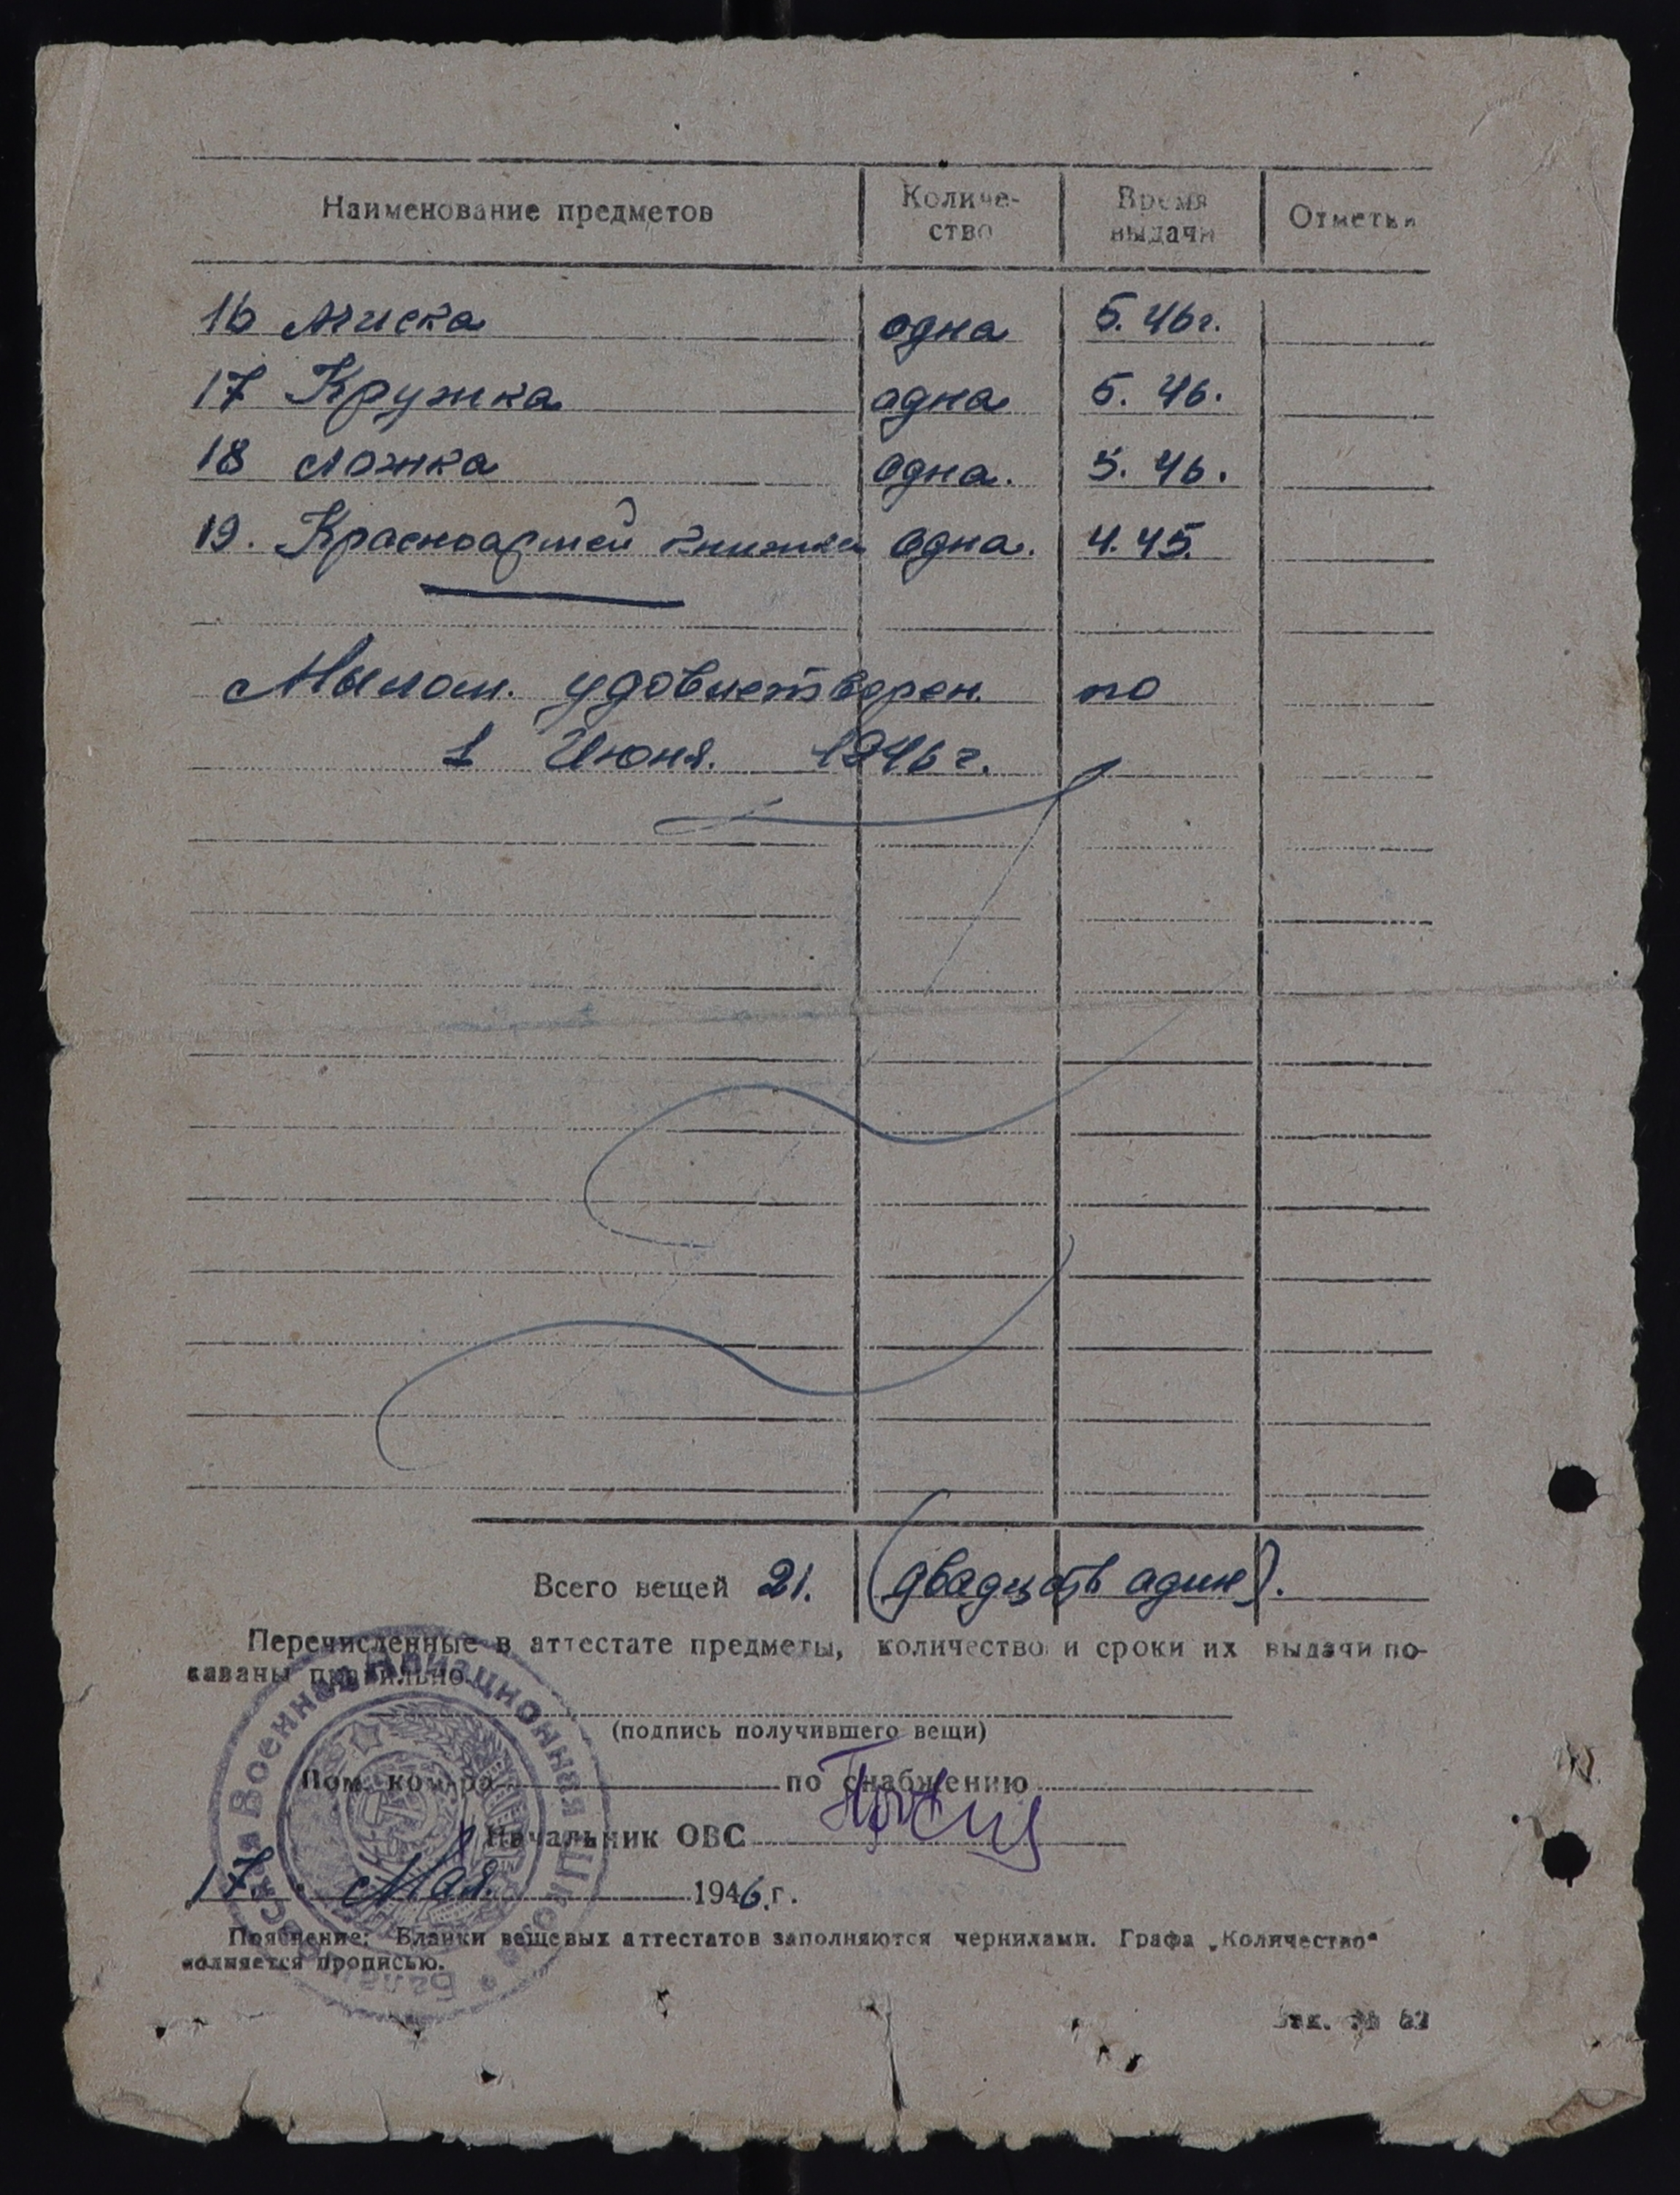 Наименование предметов Количе- Время Отметки
ство выдачи
16 Миска одна 5. 46г.
17 Кружка одна 5. 46.
18 Ложка одна. 5. 46.
19. Красноармей книжка одна. 4. 45.
Мылом. удовлетворен. по
1 Июня. 1946 г.
Всего вещей 21. (двадцать адин).
Перечисленные в аттестате предметы, количество и сроки их выдачи по-
казаны правильно.
(подпись получившего вещи)
Пом. ком-ра по снабжению
Начальник ОВС
17. Мая. 1946. г.
Пояснение: Бланки вещевых аттестатов заполняются чернилами. Графа „Количество"
полняется прописью.
Зак. № 62
Военная Авиационная Школа